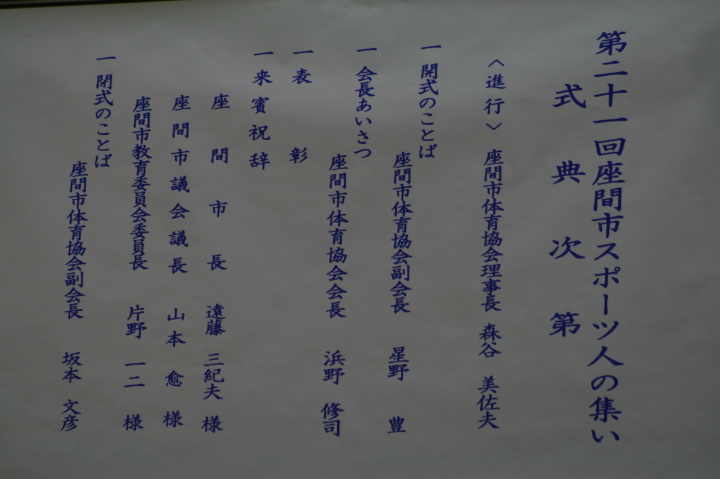 第二十一回座間市スポーツ人の集い
式典次第
〈進行〉 座間市体育協会理事長 森谷 美佐夫
一 開式のことば
座間市体育協会副会長 星野 豊
一 会長あいさつ
座間市体育協会会長 浜野 修司
一 表彰
一 来賓祝辞
座間市長 遠藤 三紀夫 様
座間市議会議長 山本 愈 様
座間市教育委員会委員長 片野 一二 様
一 閉式のことば
座間市体育協会副会長 坂本 文彦